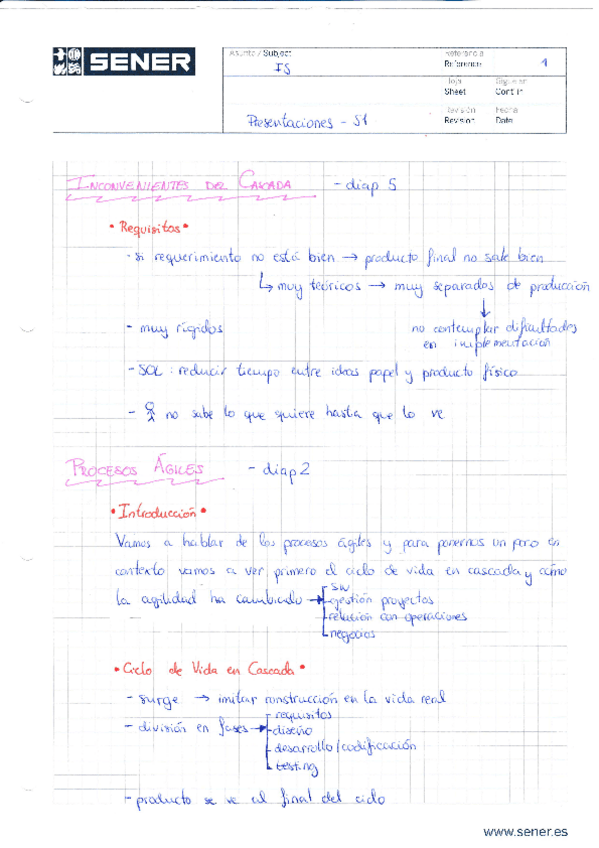 SENER
Asunto / Subject
IS
Presentaciones - S1
Referencia
Reference
1
Hoja
Sheet
Sigue en
Cont. in
Revisión
Revision
Fecha
Date
INCONVENIENTES DEL CASCADA - diap 5
• Requisitos •
- si requerimiento no está bien → producto final no sale bien
↳ muy teóricos → muy separados de producción
↓
- muy rígidos
no contemplar dificultades
en implementación
- SOL : reducir tiempo entre ideas papel y producto físico
- no sabe lo que quiere hasta que lo ve
PROCESOS ÁGILES - diap 2
• Introducción •
Vamos a hablar de los procesos ágiles y para ponernos un poco en
contexto vamos a ver primero el ciclo de vida en cascada y cómo
la agilidad ha cambiado →
SW
gestión proyectos
relación con operaciones
negocios
• Ciclo de Vida en Cascada •
- surge → imitar construcción en la vida real
- división en fases →
requisitos
diseño
desarrollo / codificación
testing
- producto se ve al final del ciclo
www.sener.es